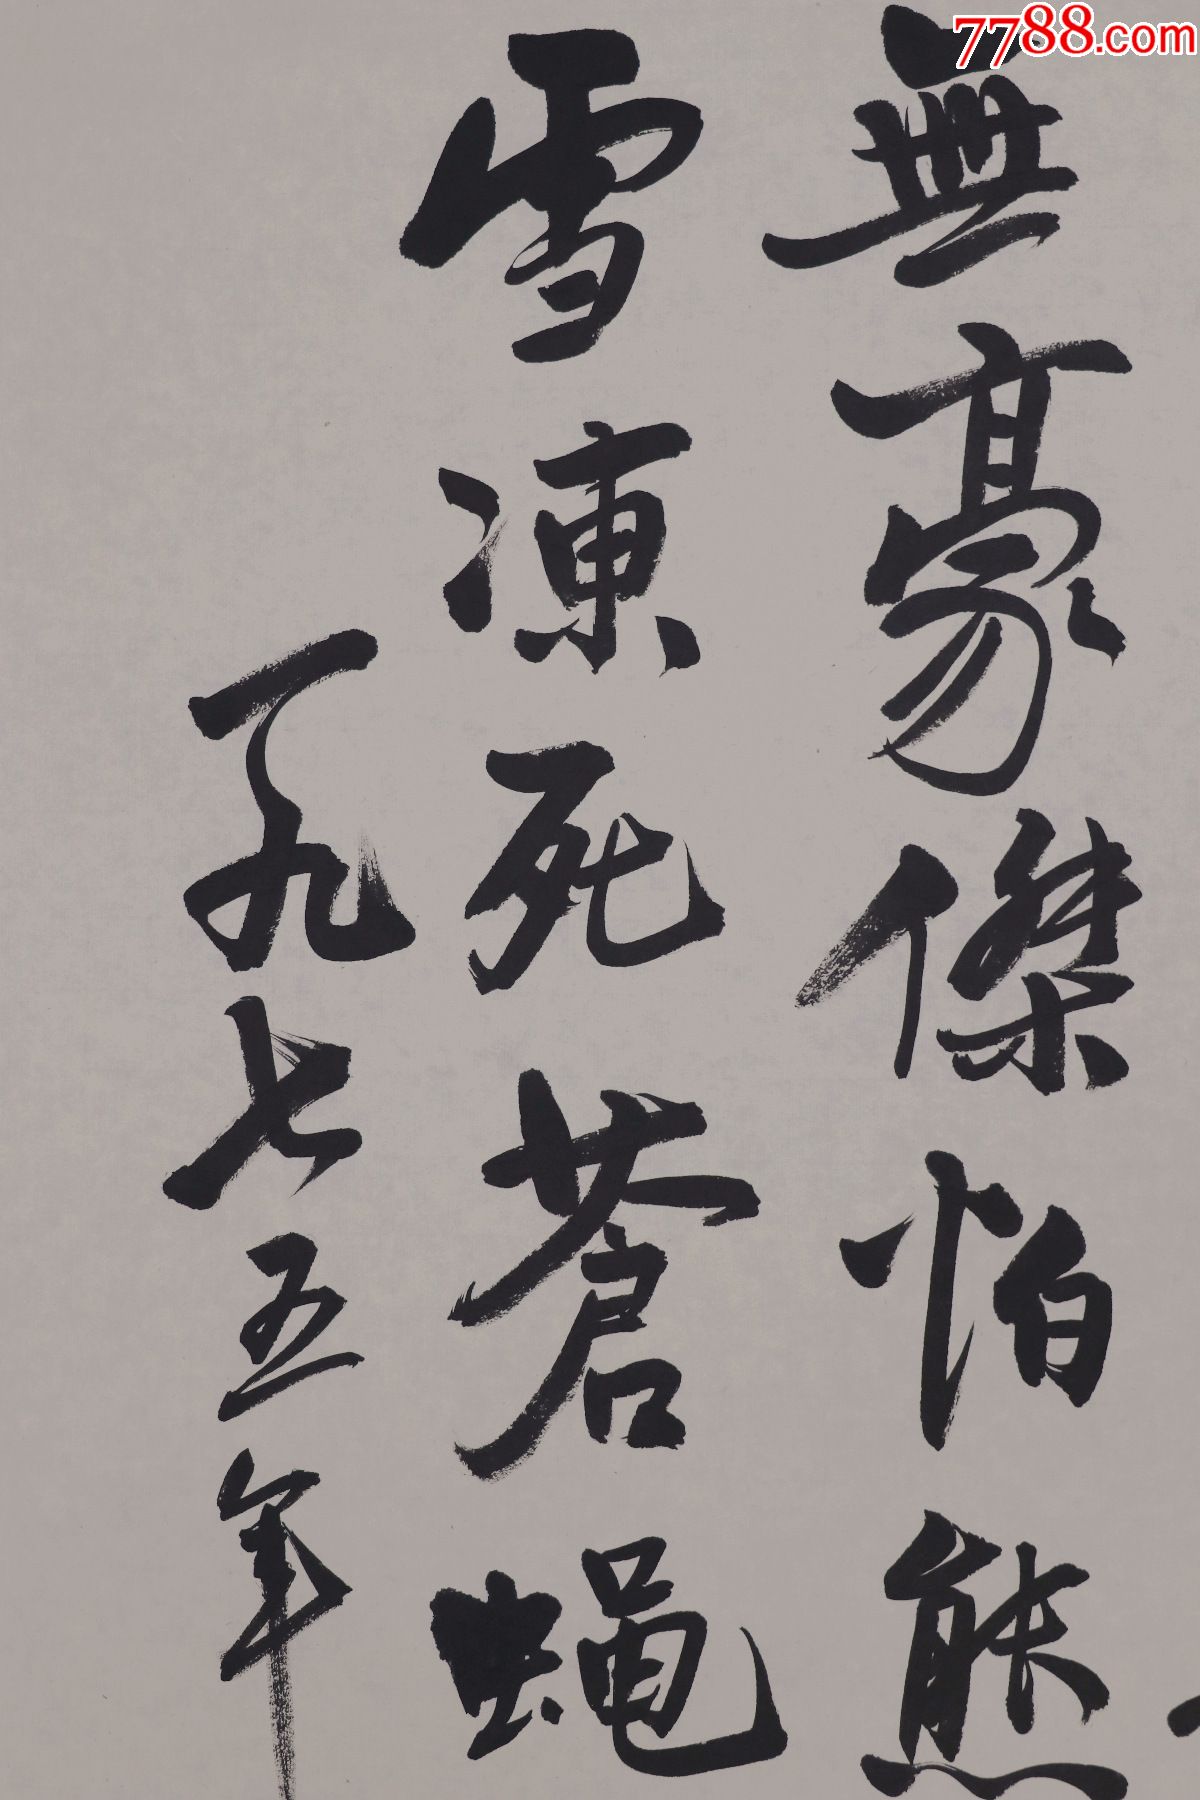 7788.com
無豪傑怕熊
雪凍死蒼蠅
一九七五年